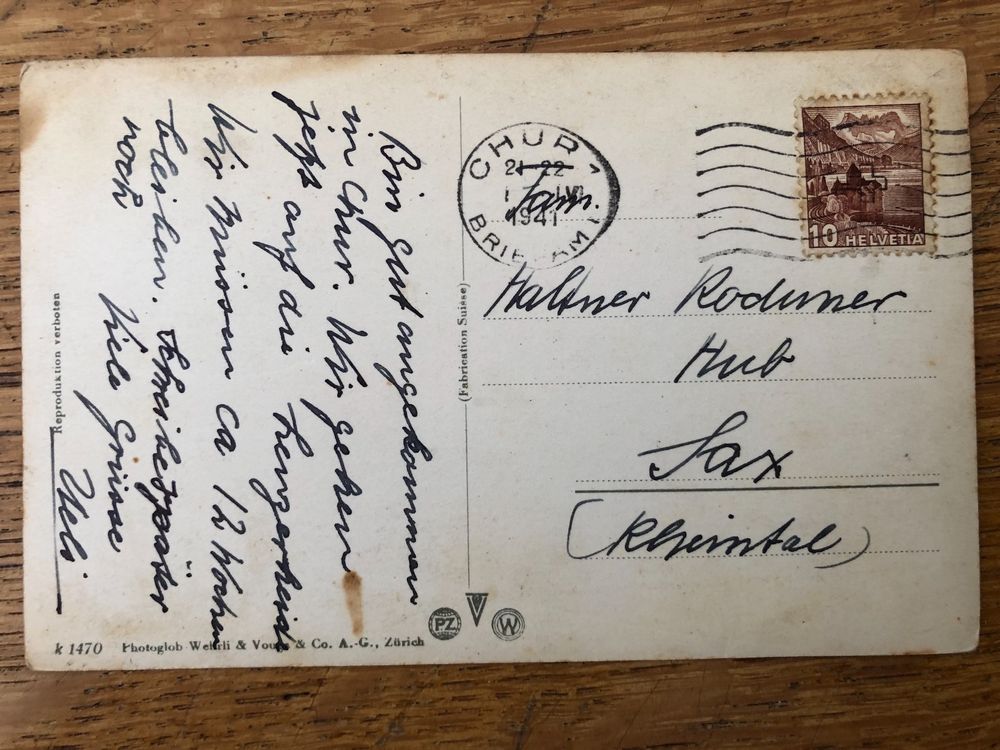 Bin gut angekommen
in Chur. Wir gehen
jetzt auf die Lenzerheide
Wir müssen ca 12 Wochen
bleiben. Schreibe später
noch
Viele Grüsse
Ueli.
Reproduktion verboten
k 1470 Photoglob Wehrli & Vouga & Co. A.-G., Zürich
(Fabrication Suisse)
PZ
V
W
CHUR 1
21-22
1941
BRIEFAMT
10 HELVETIA
Fam.
Haltner Roduner
Hub
Sax
(Rheintal)